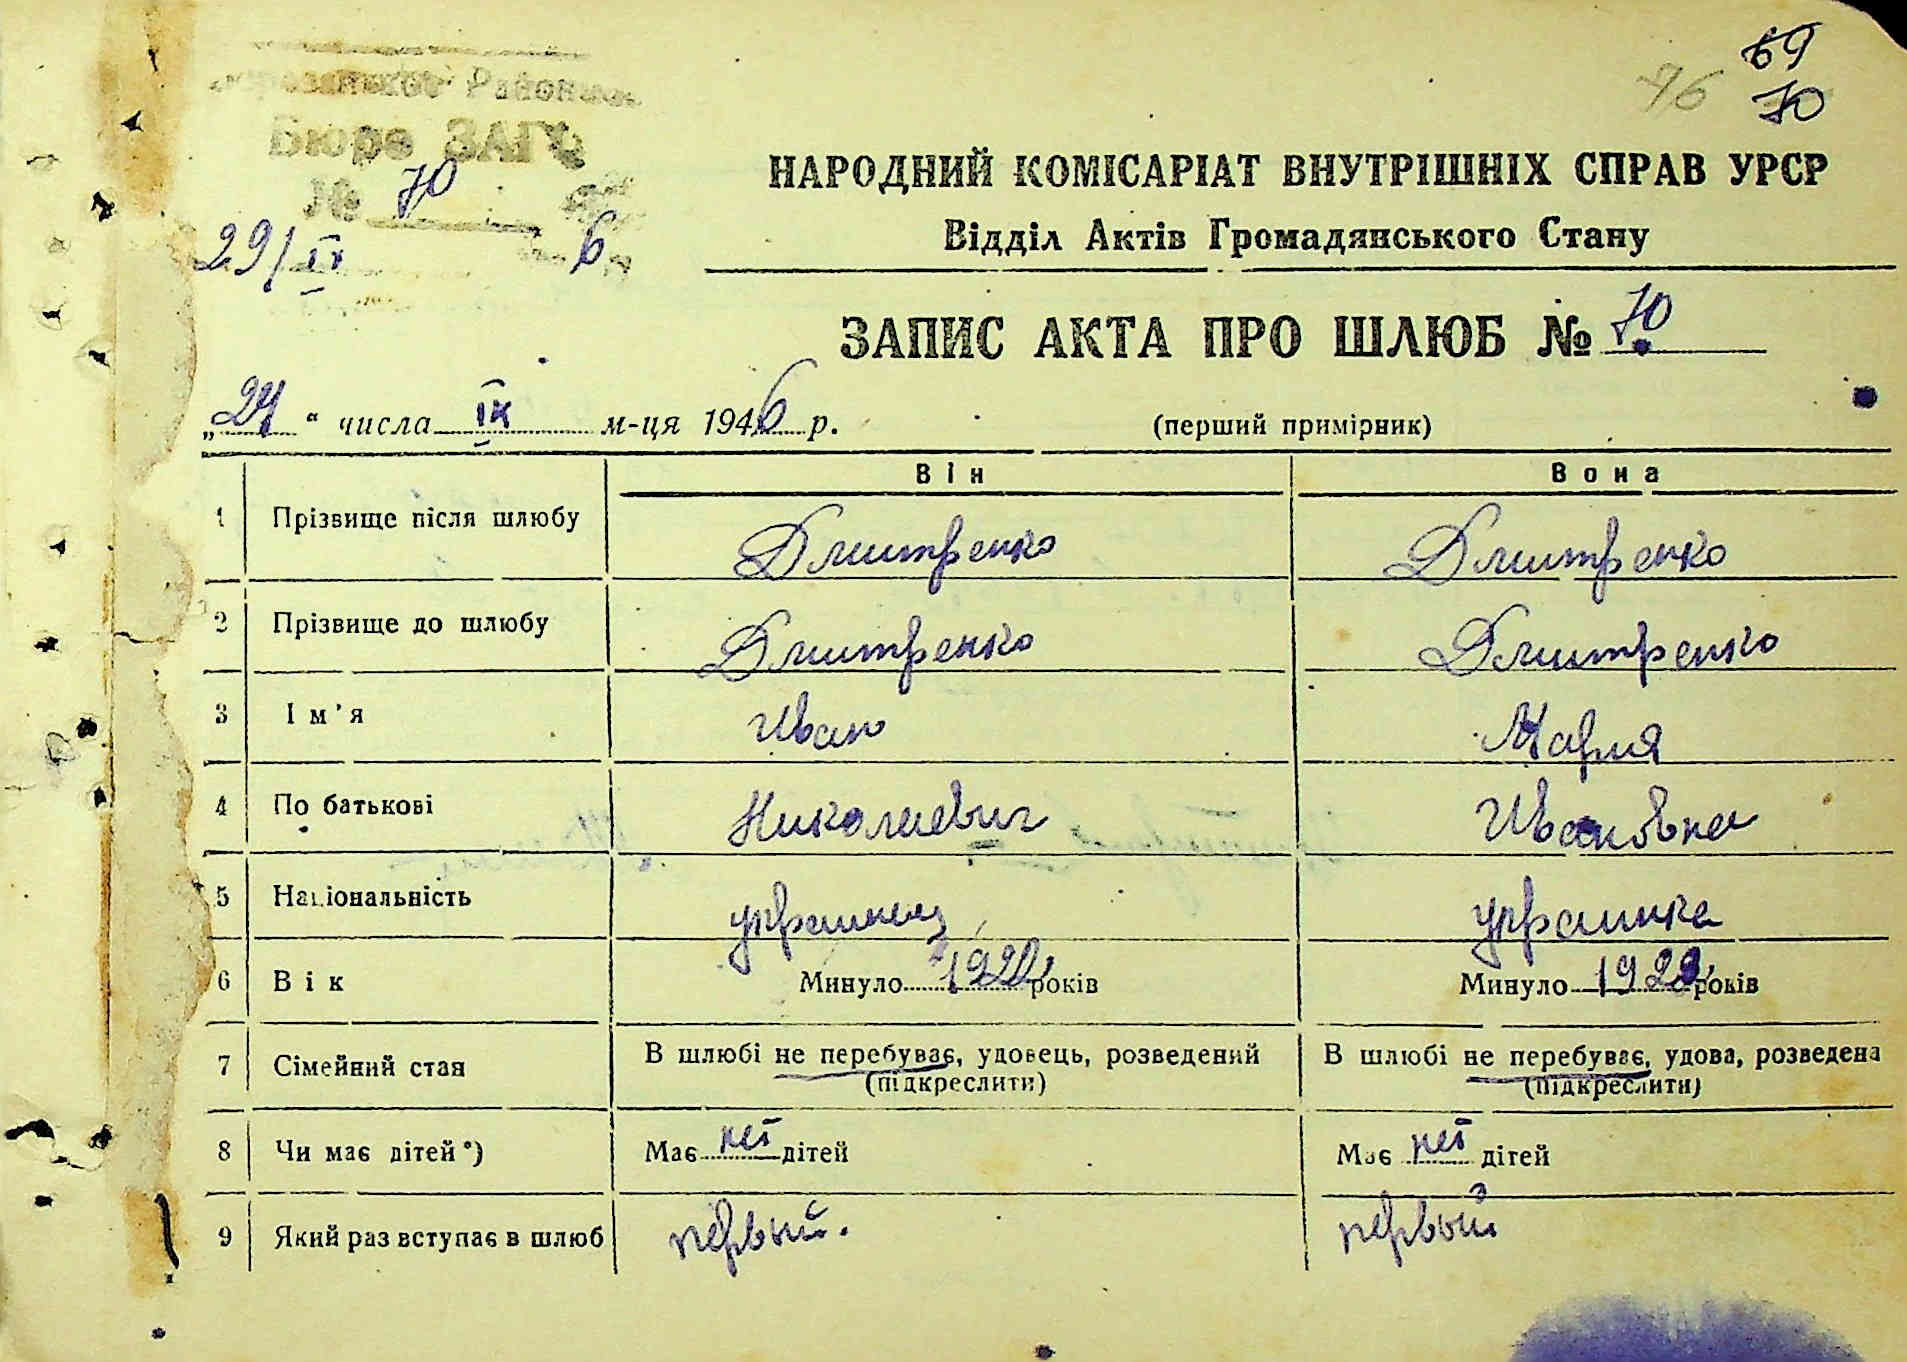 69
76 70
Бюро ЗАГС
№ 70
29/IX 6
НАРОДНИЙ КОМІСАРІАТ ВНУТРІШНІХ СПРАВ УРСР
Відділ Актів Громадянського Стану
ЗАПИС АКТА ПРО ШЛЮБ № 70
„24“ числа IX м-ця 1946 р. (перший примірник)
Він Вона
1 Прізвище після шлюбу Дмитренко Дмитренко
2 Прізвище до шлюбу Дмитренко Дмитренко
3 Ім'я Иван Мария
4 По батькові Николаевич Ивановна
5 Національність украинец украинка
6 Вік Минуло 1920 років Минуло 1923 років
7 Сімейний стан В шлюбі не перебуває, удовець, розведений В шлюбі не перебуває, удова, розведена
(підкреслити) (підкреслити)
8 Чи має дітей*) Має нет дітей Має нет дітей
9 Який раз вступає в шлюб первый. первый